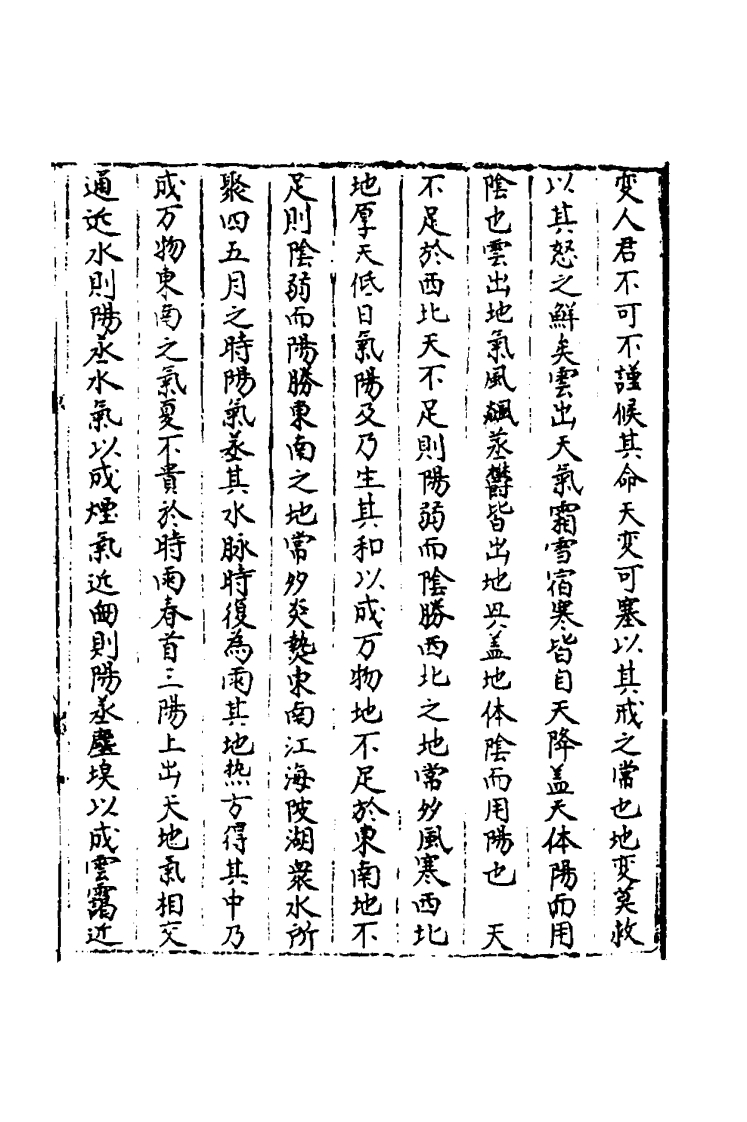 变人君不可不謹候其命天变可塞以其戒之常也地变莫救
以其怒之鮮矣雲出天氣霜雪宿寒皆自天降盖天体陽而用
陰也雲出地氣風飆蒸欝皆出地具盖地体陰而用陽也　天
不足於西北天不足則陽弱而陰勝西北之地常多風寒西北
地厚天低日氣陽及乃生其和以成万物地不足於東南地不
足則陰弱而陽勝東南之地常多炎熱東南江海陂湖衆水所
聚四五月之時陽氣蒸其水脉時復為雨其地热方得其中乃
成万物東南之氣夏不貴於時雨春首三陽上出天地氣相交
通近水則陽蒸水氣以成煙氣近則陽蒸塵埃以成雲靄近